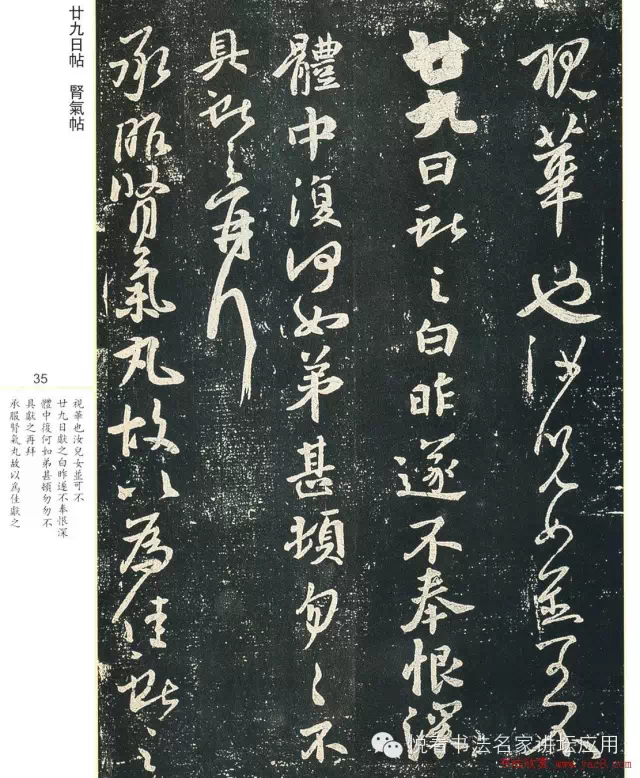 視華也汝兒女並可不
廿九日獻之白昨遂不奉恨深
體中復何如弟甚頓勿々不
具獻之再拜
承服腎氣丸故以為佳獻之
廿九日帖 腎氣帖
35
視華也汝兒女並可不
廿九日獻之白昨遂不奉恨深
體中復何如弟甚頓勿勿不
具獻之再拜
承服腎氣丸故以爲佳獻之
悦看书法名家讲坛应用